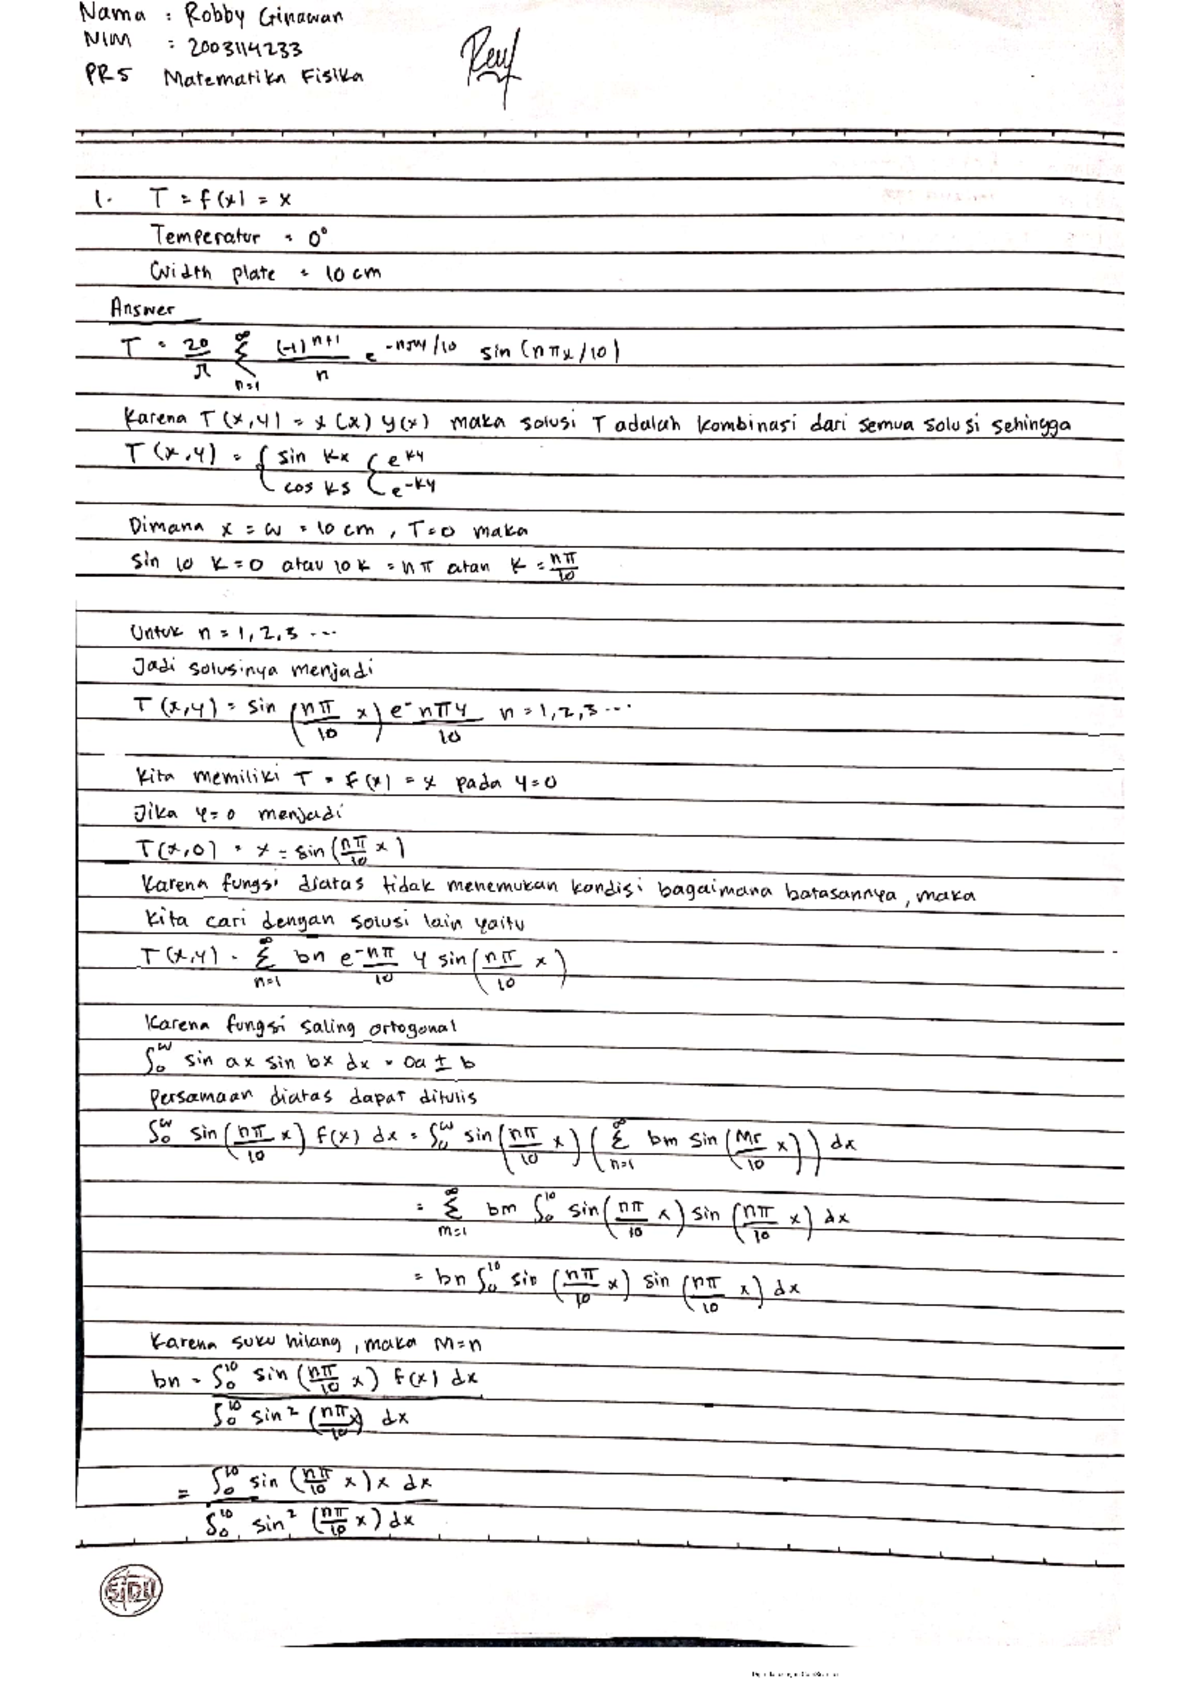 Nama : Robby Ginawan
NIM : 2003114233
PR5 Matematika Fisika
1. T = f(x) = x
Temperatur = 0°
Width plate = 10 cm
Answer
T = 20/π ∑_{n=1}^{∞} (-1)^{n+1}/n e^{-nπy/10} sin (nπx/10)
Karena T(x,y) = x(x) y(x) maka solusi T adalah kombinasi dari semua solusi sehingga
T(x,y) = { sin kx { e^{ky}
{ cos ks { e^{-ky}
Dimana x = w = 10 cm, T=0 maka
sin 10 k = 0 atau 10k = nπ atau k = nπ/10
Untuk n = 1,2,3 ...
Jadi solusinya menjadi
T(x,y) = sin (nπ/10 x) e^- nπy/10 n = 1,2,3 ...
Kita memiliki T = f(x) = x pada y=0
Jika y=0 menjadi
T(x,0) = x = sin (nπ/10 x)
Karena fungsi diatas tidak menemukan kondisi bagaimana batasannya, maka
kita cari dengan solusi lain yaitu
T(x,y) = ∑_{n=1}^{∞} bn e^{-nπ/10} y sin (nπ/10 x)
Karena fungsi saling ortogonal
∫₀^w sin ax sin bx dx = 0a ± b
Persamaan diatas dapat ditulis
∫₀^w sin (nπ/10 x) f(x) dx = ∫₀^w sin (nπ/10 x) (∑_{n=1}^{∞} bm sin (Mπ/10 x)) dx
= ∑_{m=1}^{∞} bm ∫₀^10 sin (nπ/10 x) sin (nπ/10 x) dx
= bn ∫₀^10 sin (nπ/10 x) sin (nπ/10 x) dx
Karena suku hilang, maka M=n
bn = ∫₀^10 sin (nπ/10 x) f(x) dx
∫₀^10 sin² (nπ/10 x) dx
= ∫₀^10 sin (nπ/10 x) x dx
∫₀^10 sin² (nπ/10 x) dx
SiDU